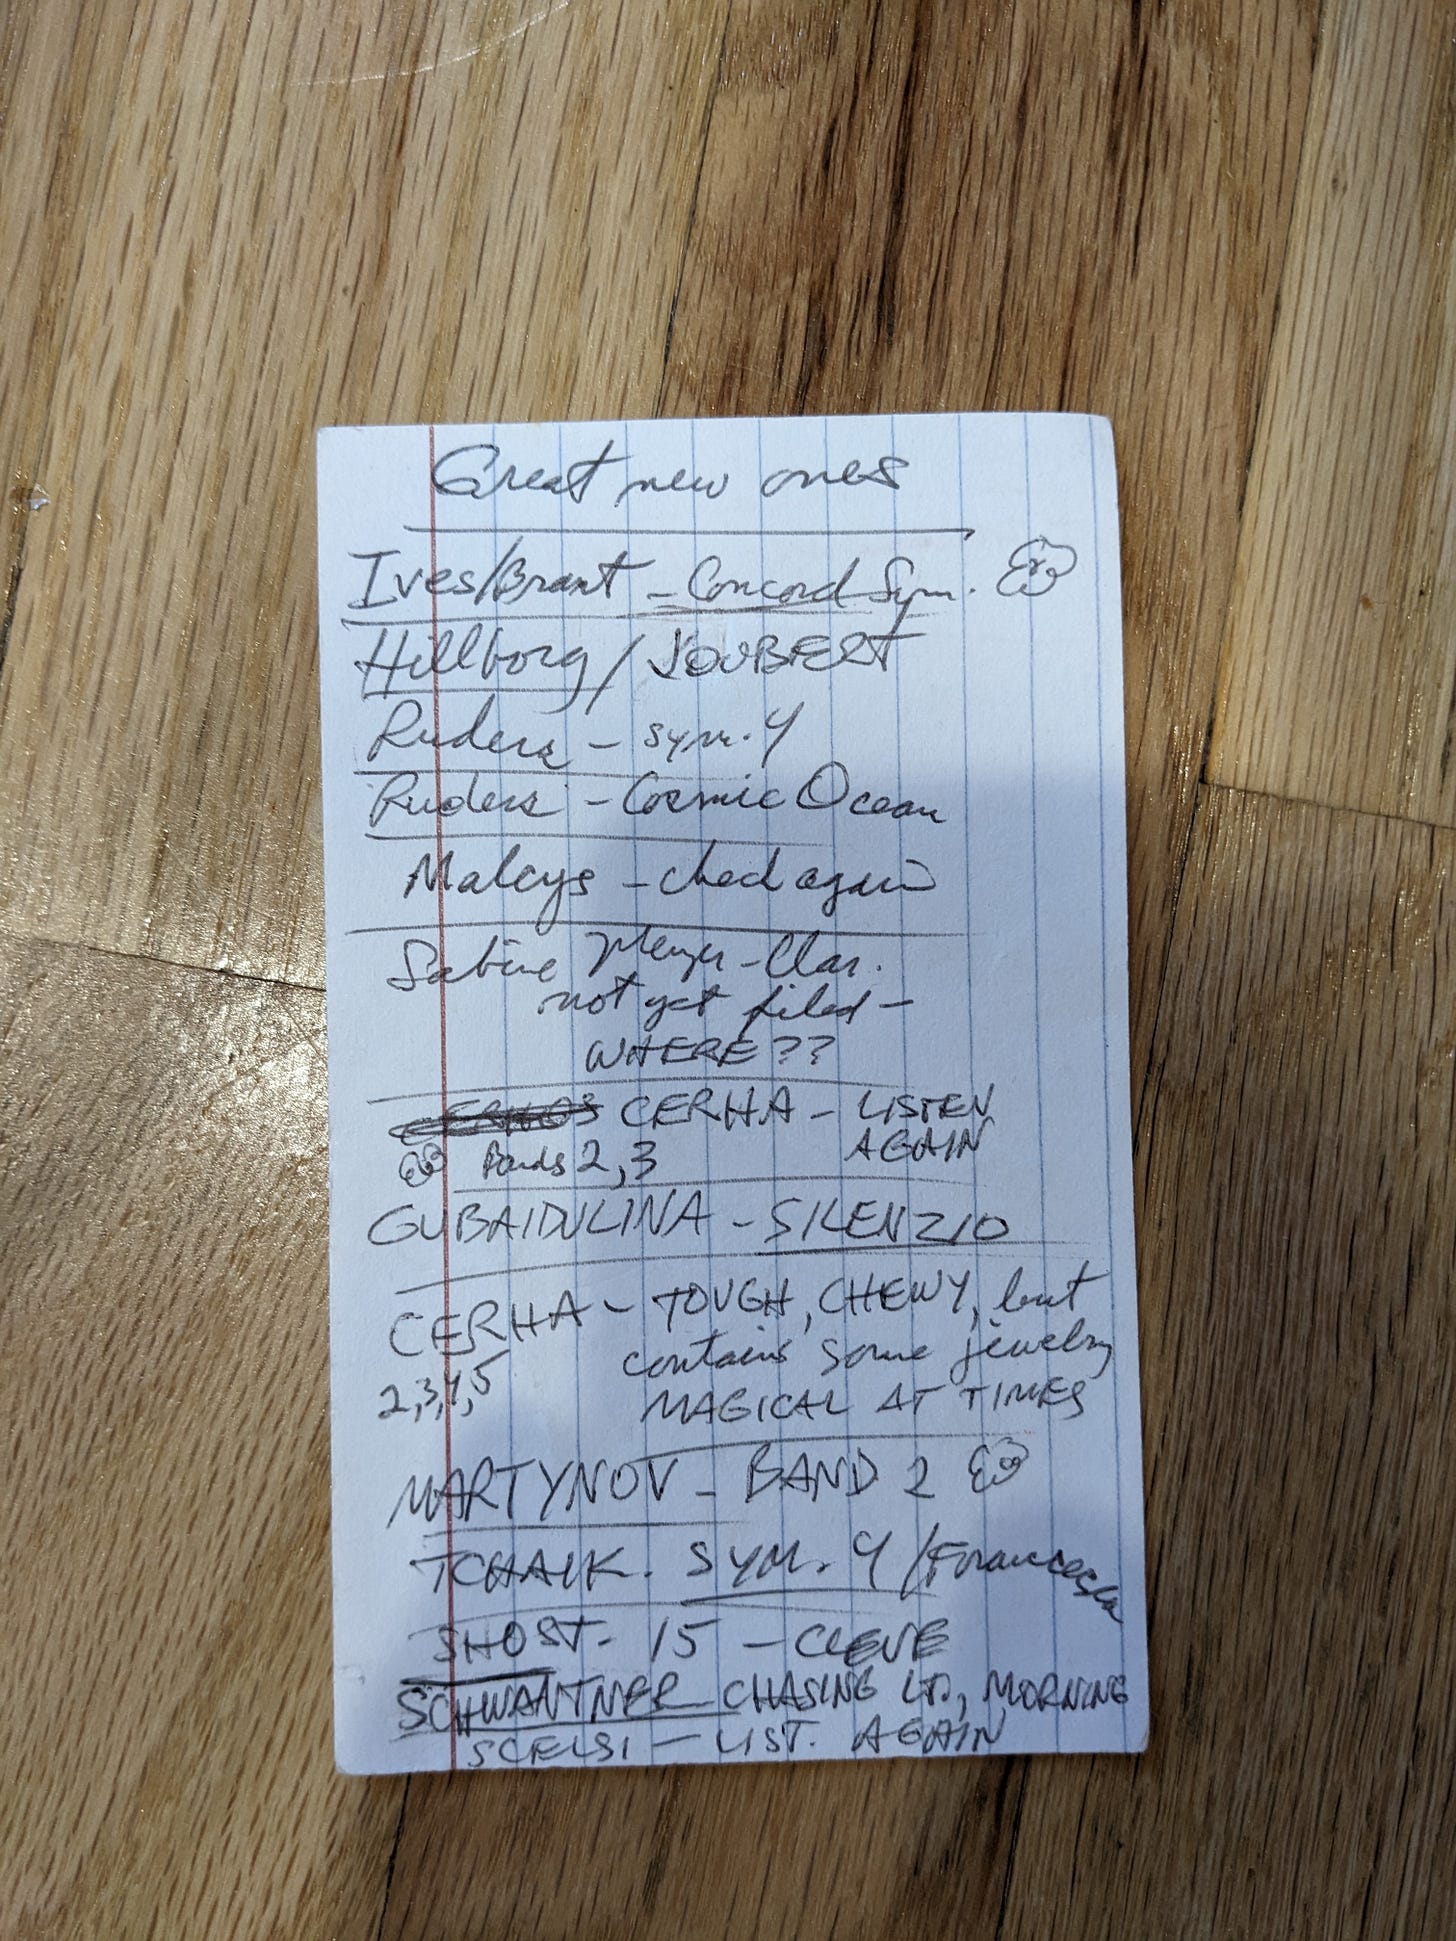 Great new ones
Ives/Brant - Concord Sym.
Hillborg / JOUBERT
Ruders - sym. 4
Ruders - Cosmic Ocean
Maleys - check again
Sabine Meyer - Clar.
not yet filed -
WHERE??
CERHA - LISTEN
AGAIN
Bands 2, 3
GUBAIDULINA - SILENZIO
CERHA - TOUGH, CHEWY, but
contains some jewelry
2,3,4,5
MAGICAL AT TIMES
MARTYNOV - BAND 2
TCHAIK. SYM. 4 / Francesca
SHOST - 15 - CLEVE
SCHWANTNER CHASING LT., MORNING
SCELSI - LIST. AGAIN